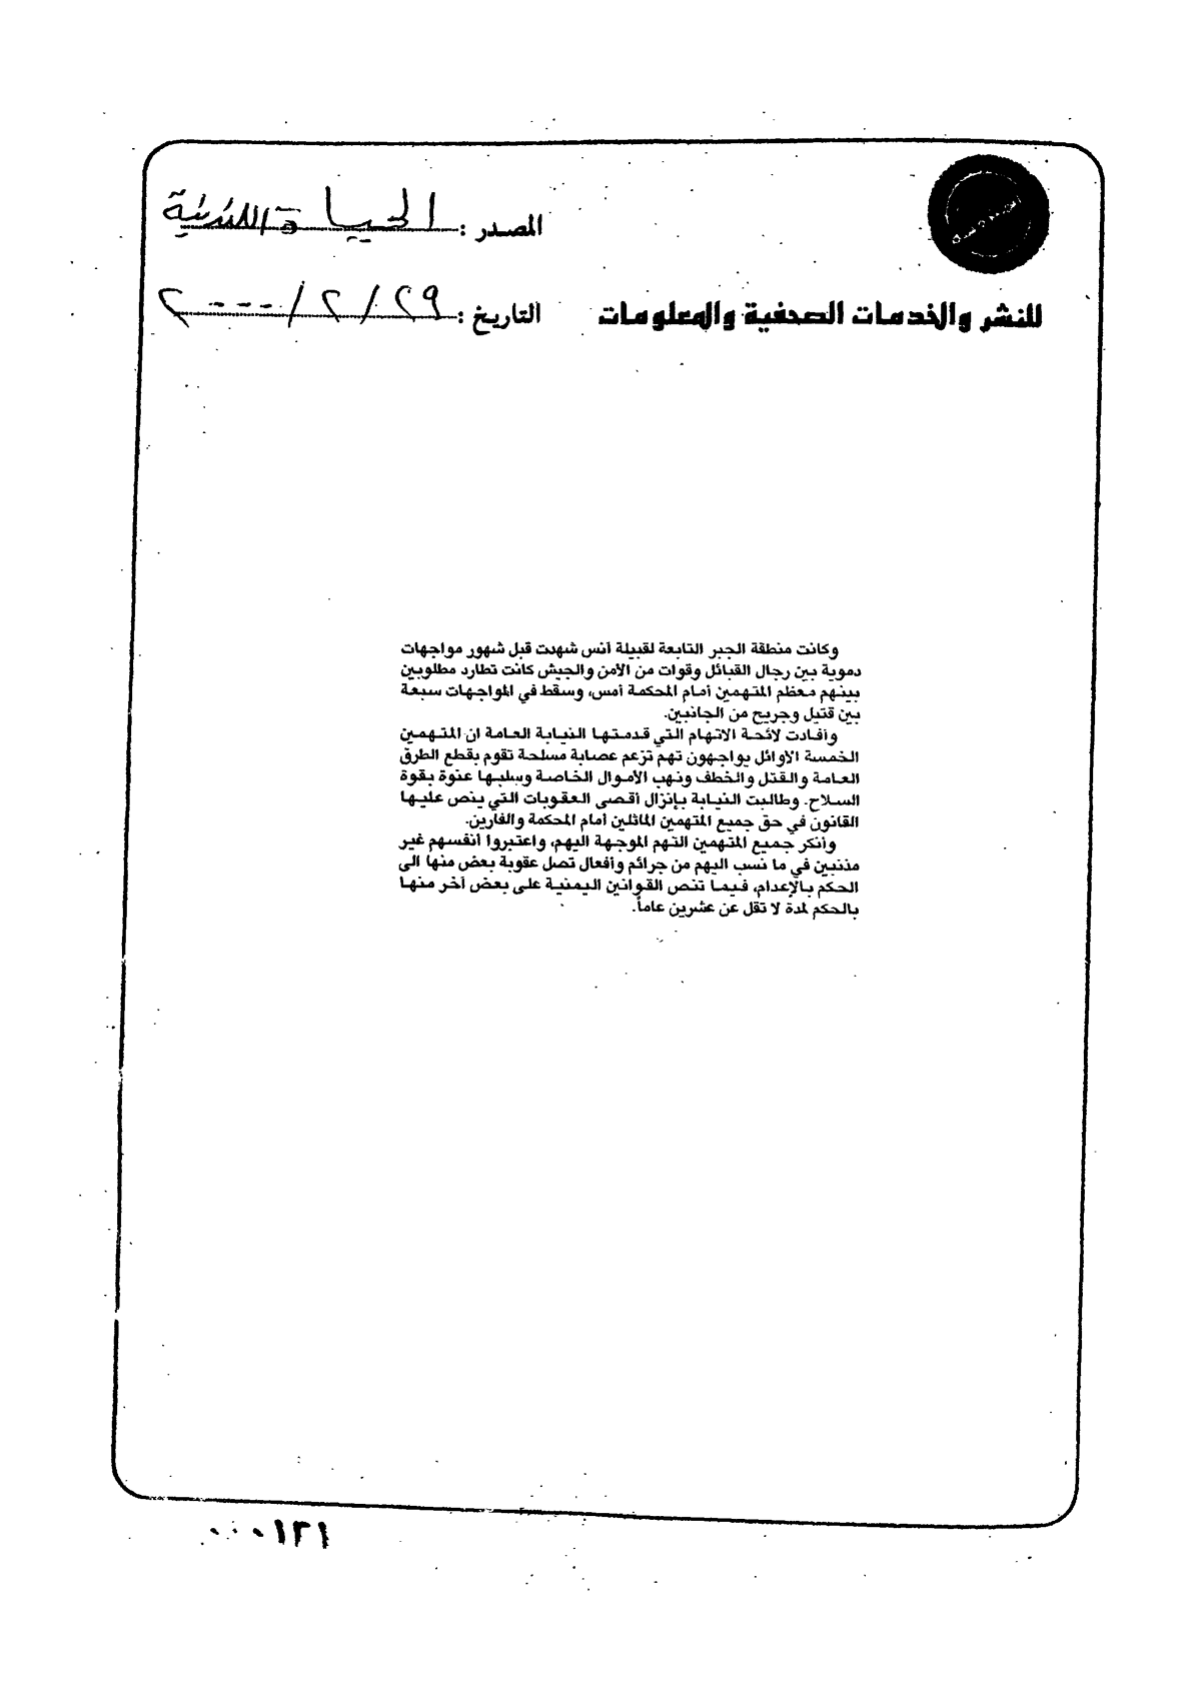 المصدر : الحياة اللندنية
للنشر والخدمات الصحفية والمعلومات
التاريخ : ٢٩/٢/٢٠٠٠
وكانت منطقة الجبر التابعة لقبيلة أنس شهدت قبل شهور مواجهات
دموية بين رجال القبائل وقوات من الأمن والجيش كانت تطارد مطلوبين
بينهم معظم المتهمين أمام المحكمة أمس، وسقط في المواجهات سبعة
بين قتيل وجريح من الجانبين.
وأفادت لائحة الاتهام التي قدمتها النيابة العامة ان المتهمين
الخمسة الأوائل يواجهون تهم تزعم عصابة مسلحة تقوم بقطع الطرق
العامة والقتل والخطف ونهب الأموال الخاصة وسلبها عنوة بقوة
السلاح. وطالبت النيابة بإنزال أقصى العقوبات التي ينص عليها
القانون في حق جميع المتهمين الماثلين أمام المحكمة والفارين.
وأنكر جميع المتهمين التهم الموجهة اليهم، واعتبروا أنفسهم غير
مذنبين في ما نسب اليهم من جرائم وأفعال تصل عقوبة بعض منها الى
الحكم بالإعدام، فيما تنص القوانين اليمنية على بعض آخر منها
بالحكم لمدة لا تقل عن عشرين عاماً.
٠٠٠١٢١